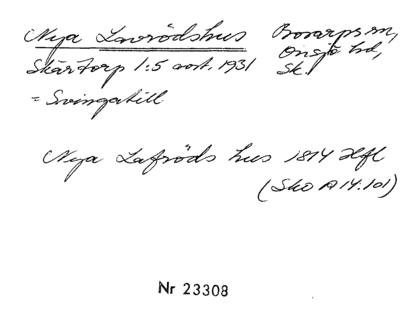 Nya Lavrödshus Bosarps sn,
Onsjö hd,
Skärtorp 1:5 avst. 1931 Sk.
= Svingatill
Nya Lafröds hus 1814 Hfl
(Sko A14:101)
Nr 23308